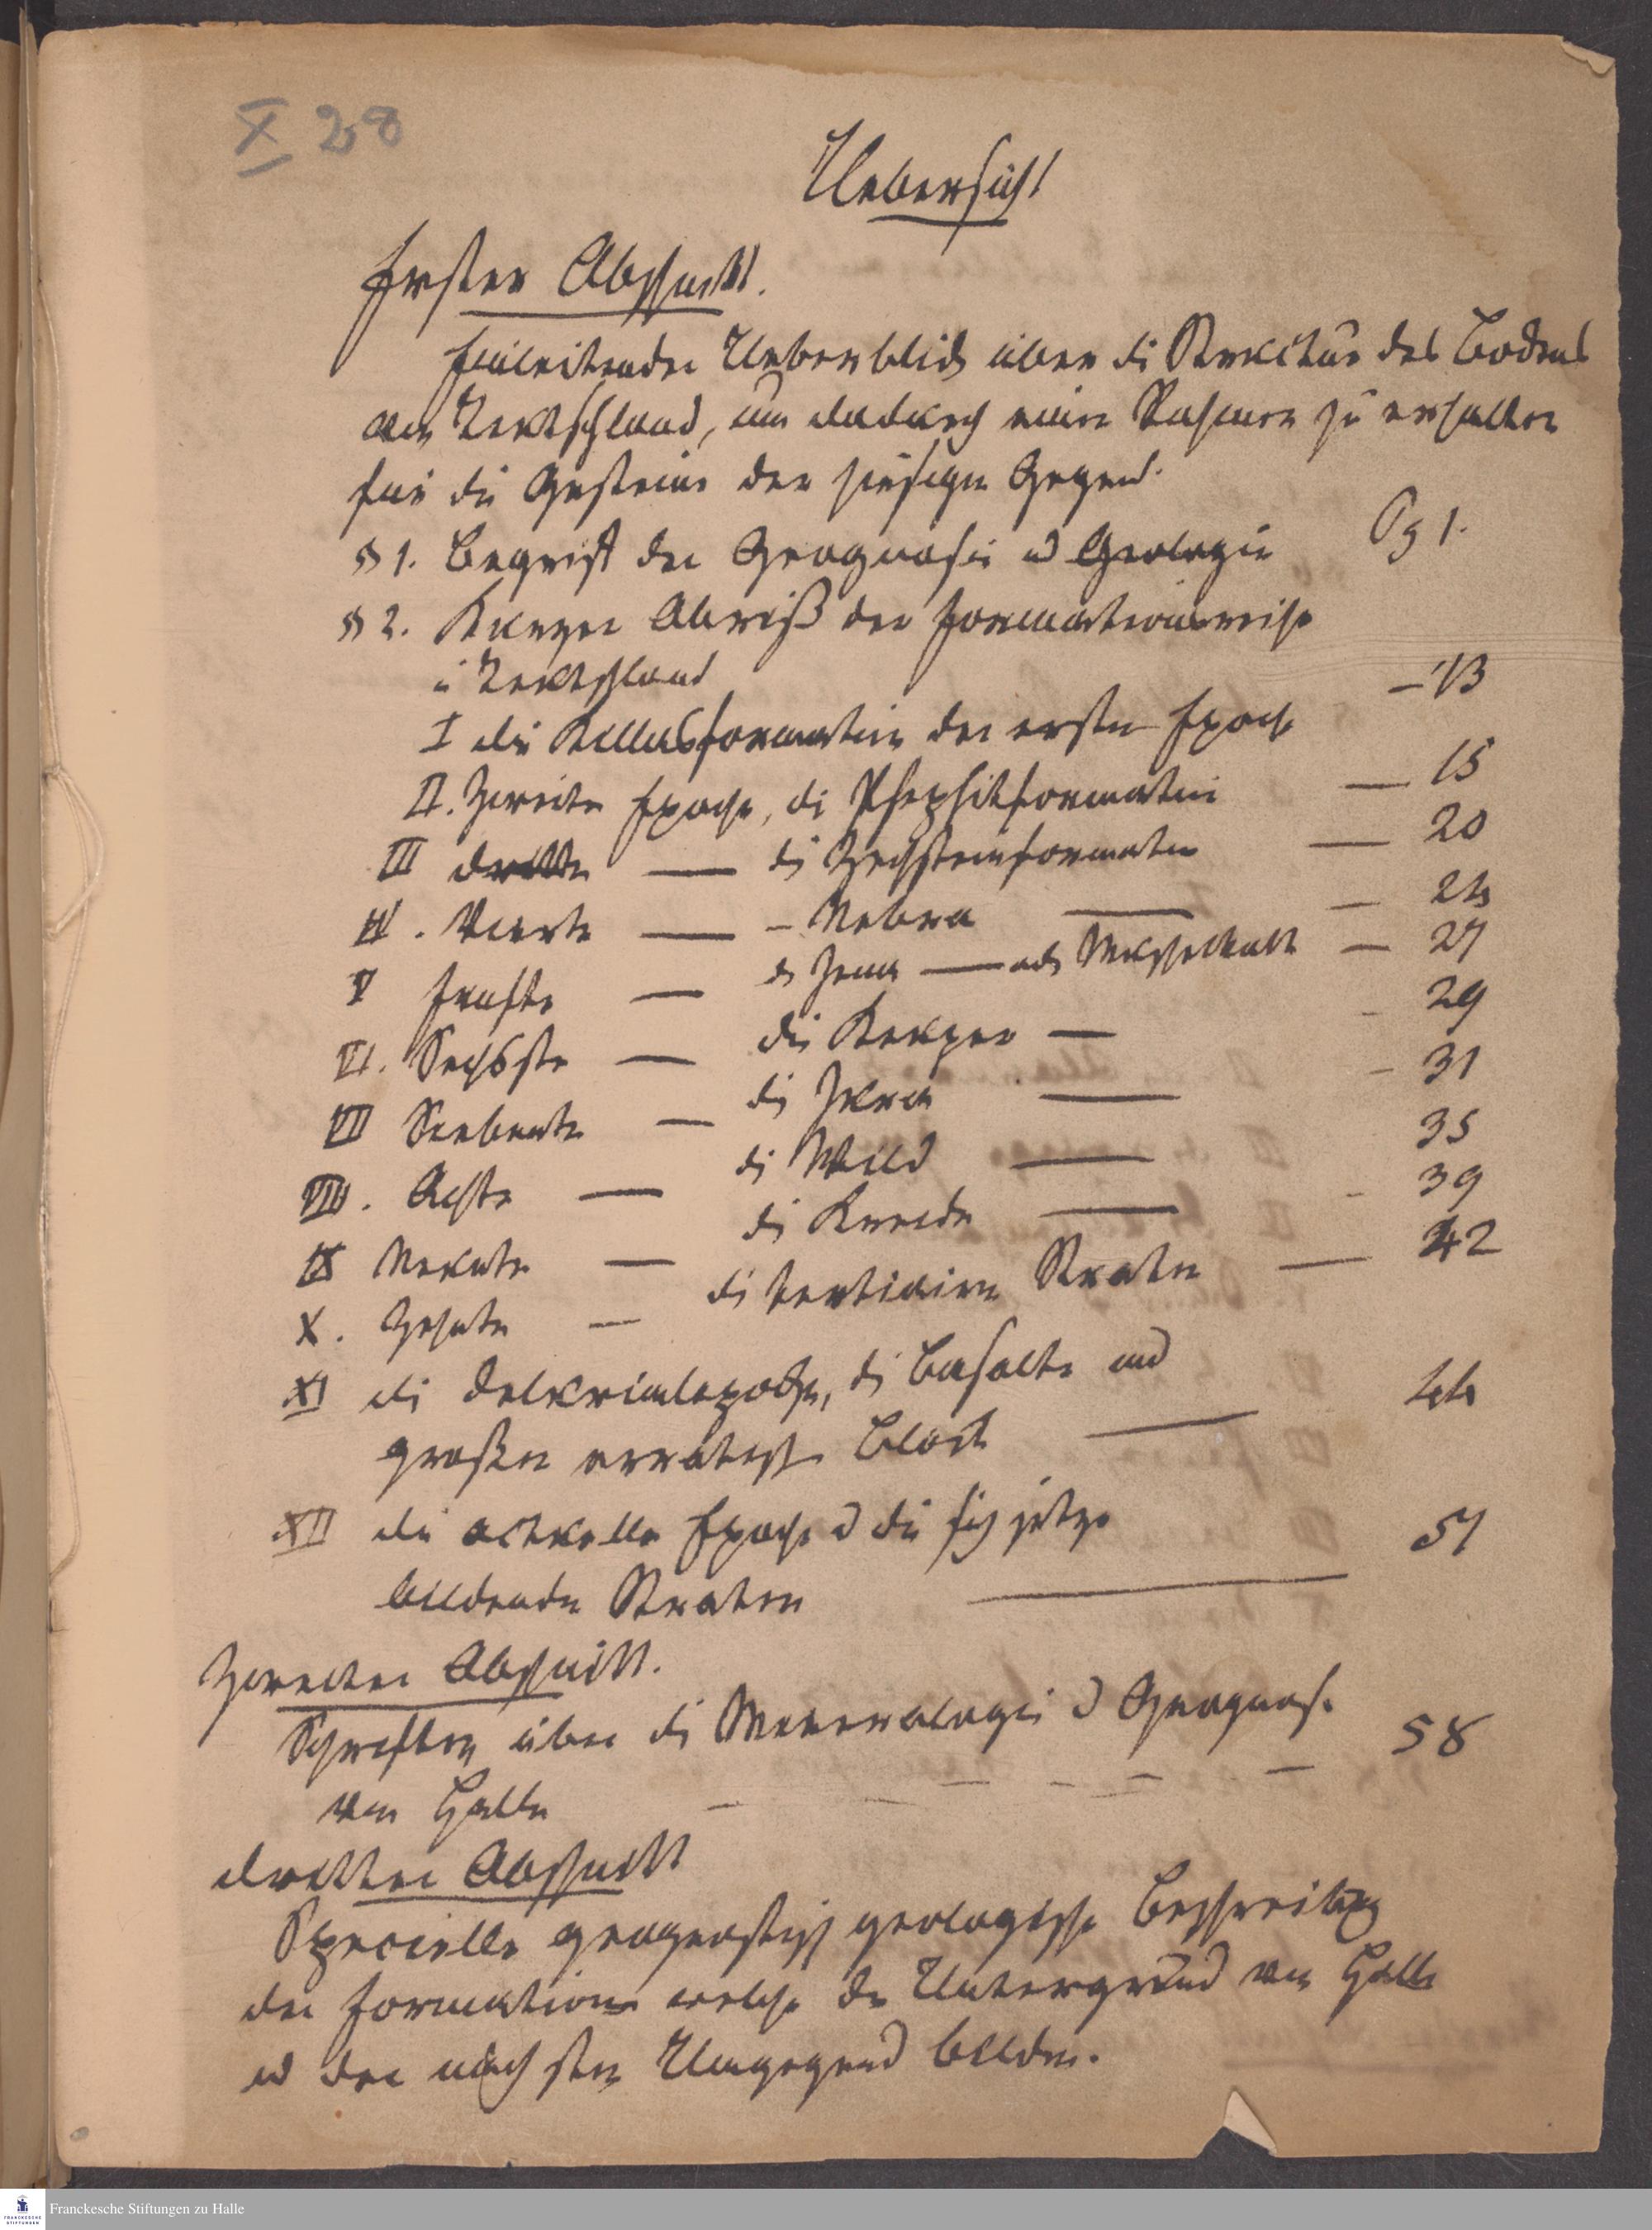 X 28
Uebersicht
Erster Abschnitt.
Einleitender Ueberblick über die Structur des Bodens
von Deutschland, um dadurch einen Rahmen zu erhalten
für die Gesteine der hiesigen Gegend.
§ 1. Begriff der Geognosie u Geologie Pg 1.
§ 2. Kurzer Abriß der Formationsweise
in Deutschland
I die Killasformation der ersten Epoche – 13
II. Zweite Epoche, die Psephitformation — 15
III dritte — die Zechsteinformation — 20
IV. Vierte — – Nebra — — 24
V Fünfte — die Jena — oder Muschelkalk — 27
VI. Sechste — die Keuper — - 29
VII Siebente — die Jura — - 31
VIII. Achte — die Wald — 35
IX Neunte — die Kreide — - 39
X. Zehnte — die tertiairen Straten — 42
XI die Deluvialepoche, die Basalte und
großen erratischen Blöcke — 44
XII die actuelle Epoche u die sich jetzo
bildenden Straten — 57
Zweiter Abschnitt.
Schriften über die Mineralogie u Geognosie
von Halle – – – – – – 58
dritter Abschnitt
Specielle geognostisch geologische Beschreibung
der Formationen welche den Untergrund von Halle
u der nächsten Umgegend bilden.
Franckesche Stiftungen zu Halle
FRANCKESCHE
STIFTUNGEN